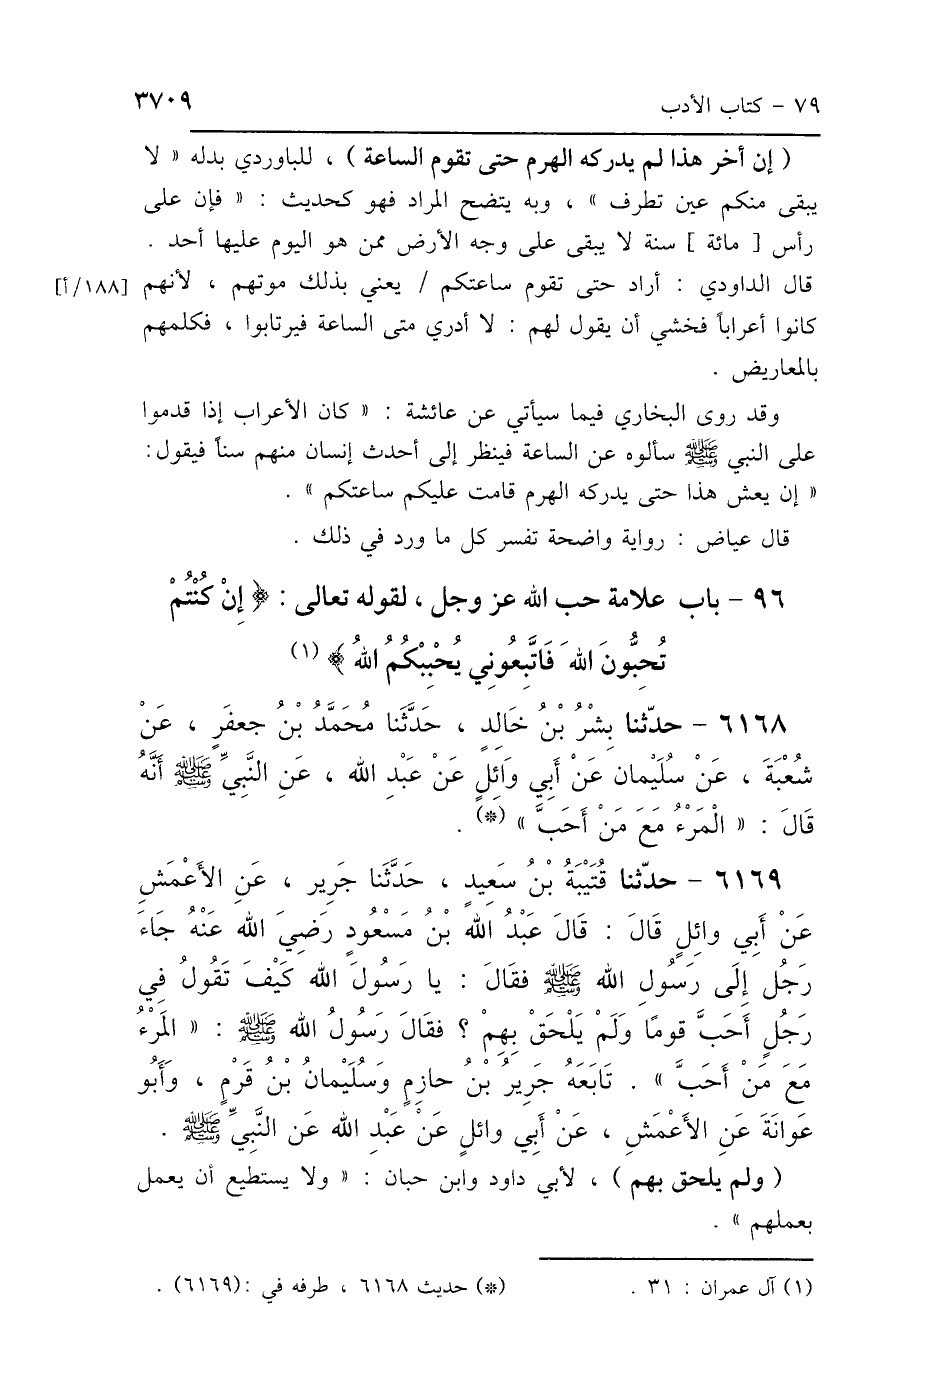 ٧٩ - كتاب الأدب ٣٧٠٩
( إن أخر هذا لم يدركه الهرم حتى تقوم الساعة ) ، للباوردي بدله « لا
يبقى منكم عين تطرف » ، وبه يتضح المراد فهو كحديث : « فإن على
رأس [ مائة ] سنة لا يبقى على وجه الأرض ممن هو اليوم عليها أحد .
قال الداودي : أراد حتى تقوم ساعتكم / يعني بذلك موتهم ، لأنهم [١٨٨/أ]
كانوا أعراباً فخشي أن يقول لهم : لا أدري متى الساعة فيرتابوا ، فكلمهم
بالمعاريض .
وقد روى البخاري فيما سيأتي عن عائشة : « كان الأعراب إذا قدموا
على النبي ﷺ سألوه عن الساعة فينظر إلى أحدث إنسان منهم سناً فيقول:
« إن يعش هذا حتى يدركه الهرم قامت عليكم ساعتكم » .
قال عياض : رواية واضحة تفسر كل ما ورد في ذلك .
٩٦ - باب علامة حب الله عز وجل ، لقوله تعالى : ﴿ إِنْ كُنْتُمْ
تُحِبُّونَ اللهَ فَاتَّبِعُونِي يُحْبِبْكُمُ اللهُ ﴾ (١)
٦١٦٨ - حدّثنا بِشْرُ بْنُ خَالِدٍ ، حَدَّثَنَا مُحَمَّدُ بْنُ جعفَرٍ ، عَنْ
شُعْبَةَ ، عَنْ سُلَيْمان عَنْ أَبي وَائلٍ عَنْ عَبْدِ الله ، عَنِ النَّبيِّ ﷺ أَنَّهُ
قَالَ : « الْمَرْءُ مَعَ مَنْ أَحَبَّ » (*) .
٦١٦٩ - حدّثنا قُتَيْبَةُ بْنُ سَعِيدٍ ، حَدَّثَنَا جَرِير ، عَنِ الأَعْمَشِ
عَنْ أَبي وائلٍ قَالَ : قَالَ عَبْدُ الله بْنُ مَسْعُودٍ رَضِيَ الله عَنْهُ جَاءَ
رَجُل إِلَى رَسُولِ الله ﷺ فقَالَ : يا رَسُولَ الله كَيْفَ تَقُولُ فِي
رَجُلٍ أَحَبَّ قومًا وَلَمْ يَلْحَقْ بِهِمْ ؟ فقَالَ رَسُولُ الله ﷺ : « المَرْءُ
مَعَ مَنْ أَحَبَّ » . تَابَعَهُ جَرِيرُ بْنُ حازِمٍ وَسُلَيْمانُ بْنُ قَرْمٍ ، وَأَبُو
عَوَانَةَ عَنِ الأَعْمَشِ ، عَنْ أَبي وائلٍ عَنْ عَبْدِ الله عَن النَّبيِّ ﷺ .
( ولم يلحق بهم ) ، لأبي داود وابن حبان : « ولا يستطيع أن يعمل
بعملهم » .
(١) آل عمران : ٣١ . (*) حديث ٦١٦٨ ، طرفه في :(٦١٦٩) .